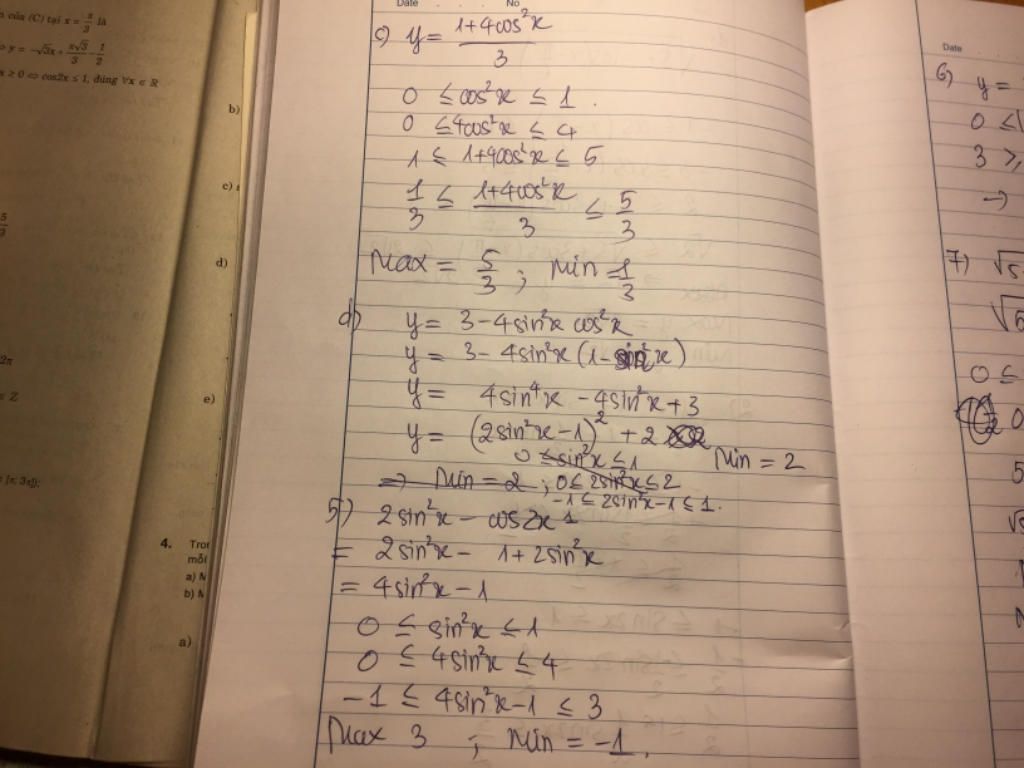 n của (C) tại x = π/3 là
y = -√3x + π√3/3 - 1/2
x ≥ 0 ⇔ cos2x ≤ 1, đúng ∀x ∈ R
b)
c)
d)
e)
[π; 3π]);
4. Trong
mỗi
a)
b)
a)
Date No
c) y = (1+4cos²x)/3
0 ≤ cos²x ≤ 1.
0 ≤ 4cos²x ≤ 4
1 ≤ 1+4cos²x ≤ 5
1/3 ≤ (1+4cos²x)/3 ≤ 5/3
Max = 5/3 ; Min 1/3
d) y = 3 - 4sin²x cos²x
y = 3 - 4sin²x (1 - sin²x)
y = 4sin⁴x - 4sin²x + 3
y = (2sin²x - 1)² + 2
0 ≤ sin²x ≤ 1 Min = 2
⇒ Min = 2 ; 0 ≤ 2sin²x ≤ 2
-1 ≤ 2sin²x - 1 ≤ 1.
5) 2sin²x - cos2x
= 2sin²x - 1 + 2sin²x
= 4sin²x - 1
0 ≤ sin²x ≤ 1
0 ≤ 4sin²x ≤ 4
-1 ≤ 4sin²x - 1 ≤ 3
Max 3 ; Min = -1.
Date
6) y =
0 ≤
3 ≥
→
7) √5
0 ≤
0
5